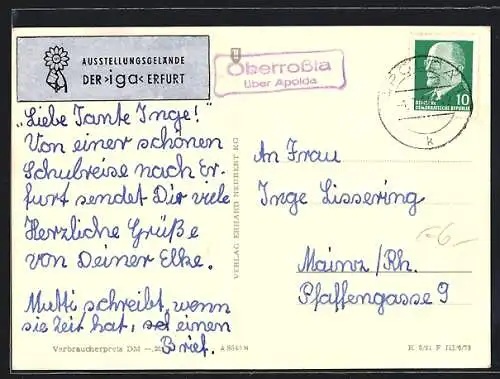 AUSSTELLUNGSGELÄNDE
DER ›iga‹ ERFURT
Oberroßla
über Apolda
DEUTSCHE
DEMOKRATISCHE REPUBLIK
10
k
„Liebe Tante Inge!"
Von einer schönen
Schulreise nach Er-
furt sendet Dir viele
Herzliche Grüße
von Deiner Elke.
Mutti schreibt, wenn
sie Zeit hat, einen
Brief.
VERLAG ERHARD NEUBERT KG
An Frau
Inge Lissering
Mainz/Rh.
Pfaffengasse 9
-6,-
Verbraucherpreis DM